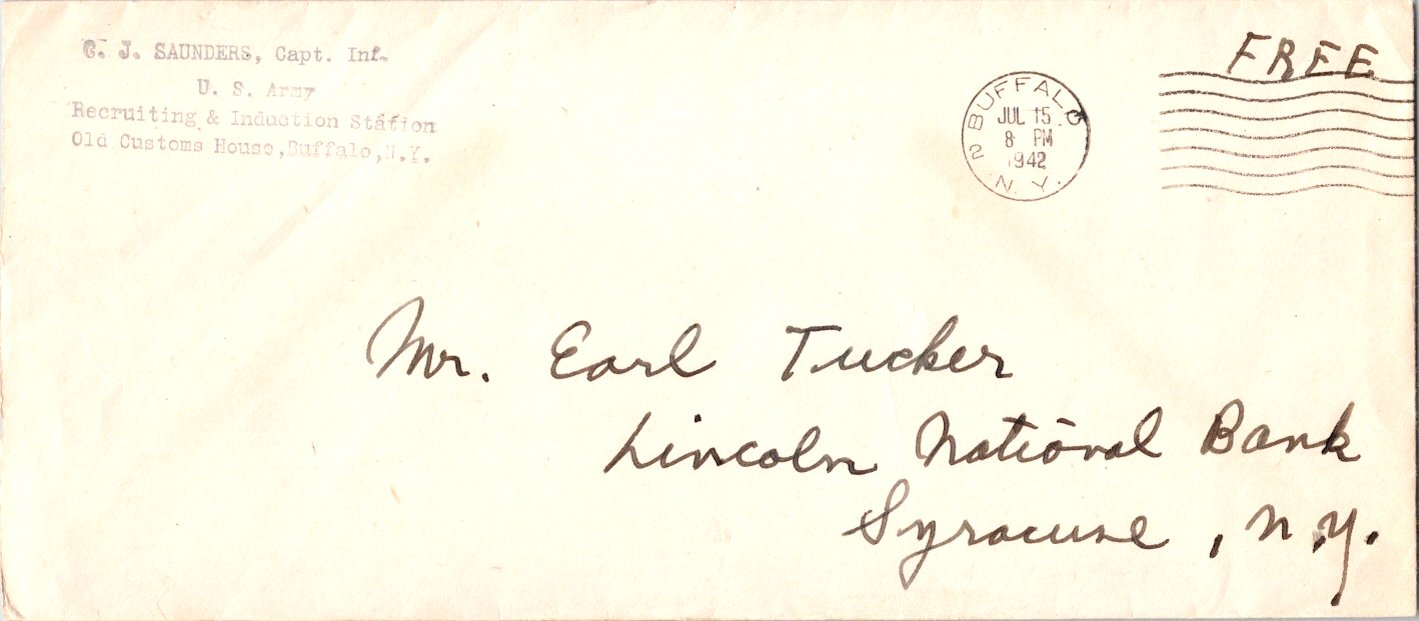 C. J. SAUNDERS, Capt. Inf.
U. S. Army
Recruiting & Induction Station
Old Customs House,Buffalo,N.Y.
FREE
BUFFALO
JUL 15
8 PM
1942
2 N. Y.
Mr. Earl Tucker
Lincoln National Bank
Syracuse, N.Y.